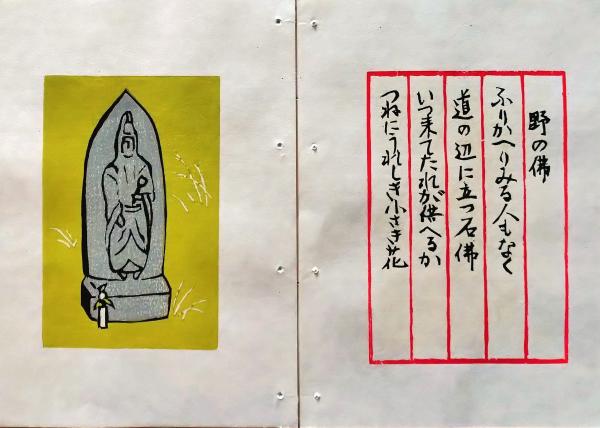 野の佛
ふりかへりみる人もなく
道の辺に立つ石佛
いつ来てたれが供へるか
つねにうれしき小さき花